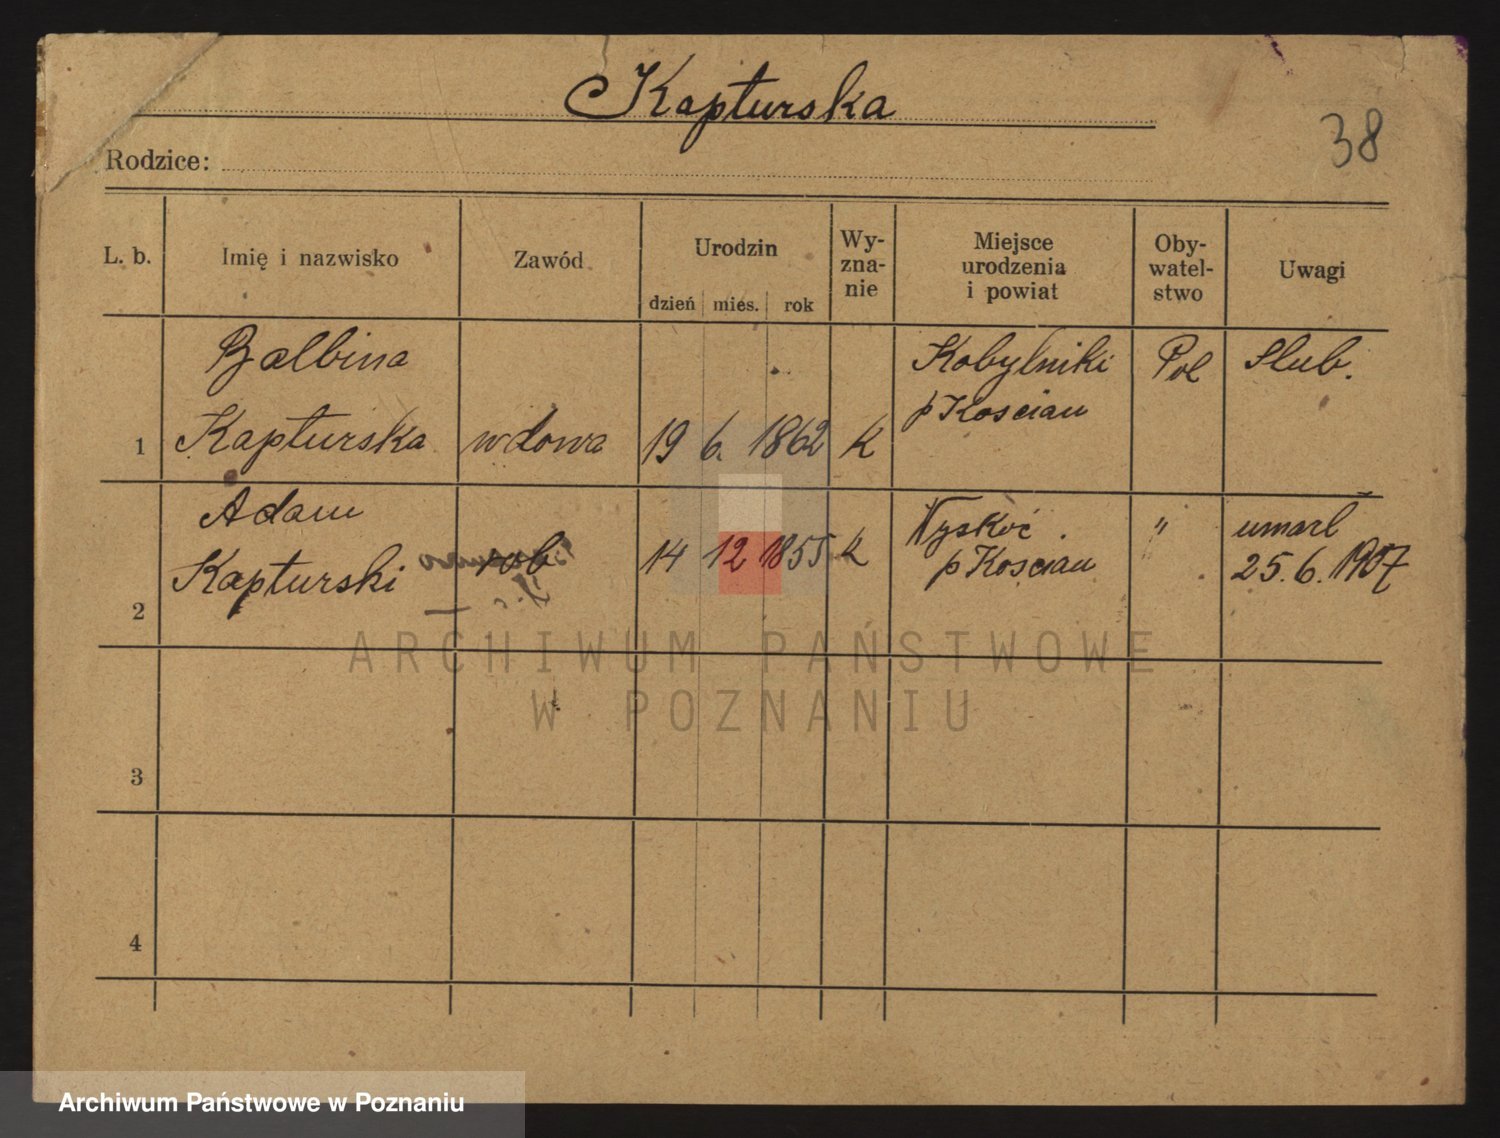 Kapturska
38
Rodzice:
L. b.
Imię i nazwisko
Zawód
Urodzin
dzień mies. rok
Wy-
zna-
nie
Miejsce
urodzenia
i powiat
Oby-
watel-
stwo
Uwagi
1
Balbina
Kapturska
wdowa
19 6. 1862
k
Kobylniki
p Koscian
Pol
Slub.
2
Adam
Kapturski
rob
14 12 1855
k
Wyskoć
p Koscian
"
umarł
25.6.1907
3
4
ARCHIWUM PAŃSTWOWE
W POZNANIU
Archiwum Państwowe w Poznaniu